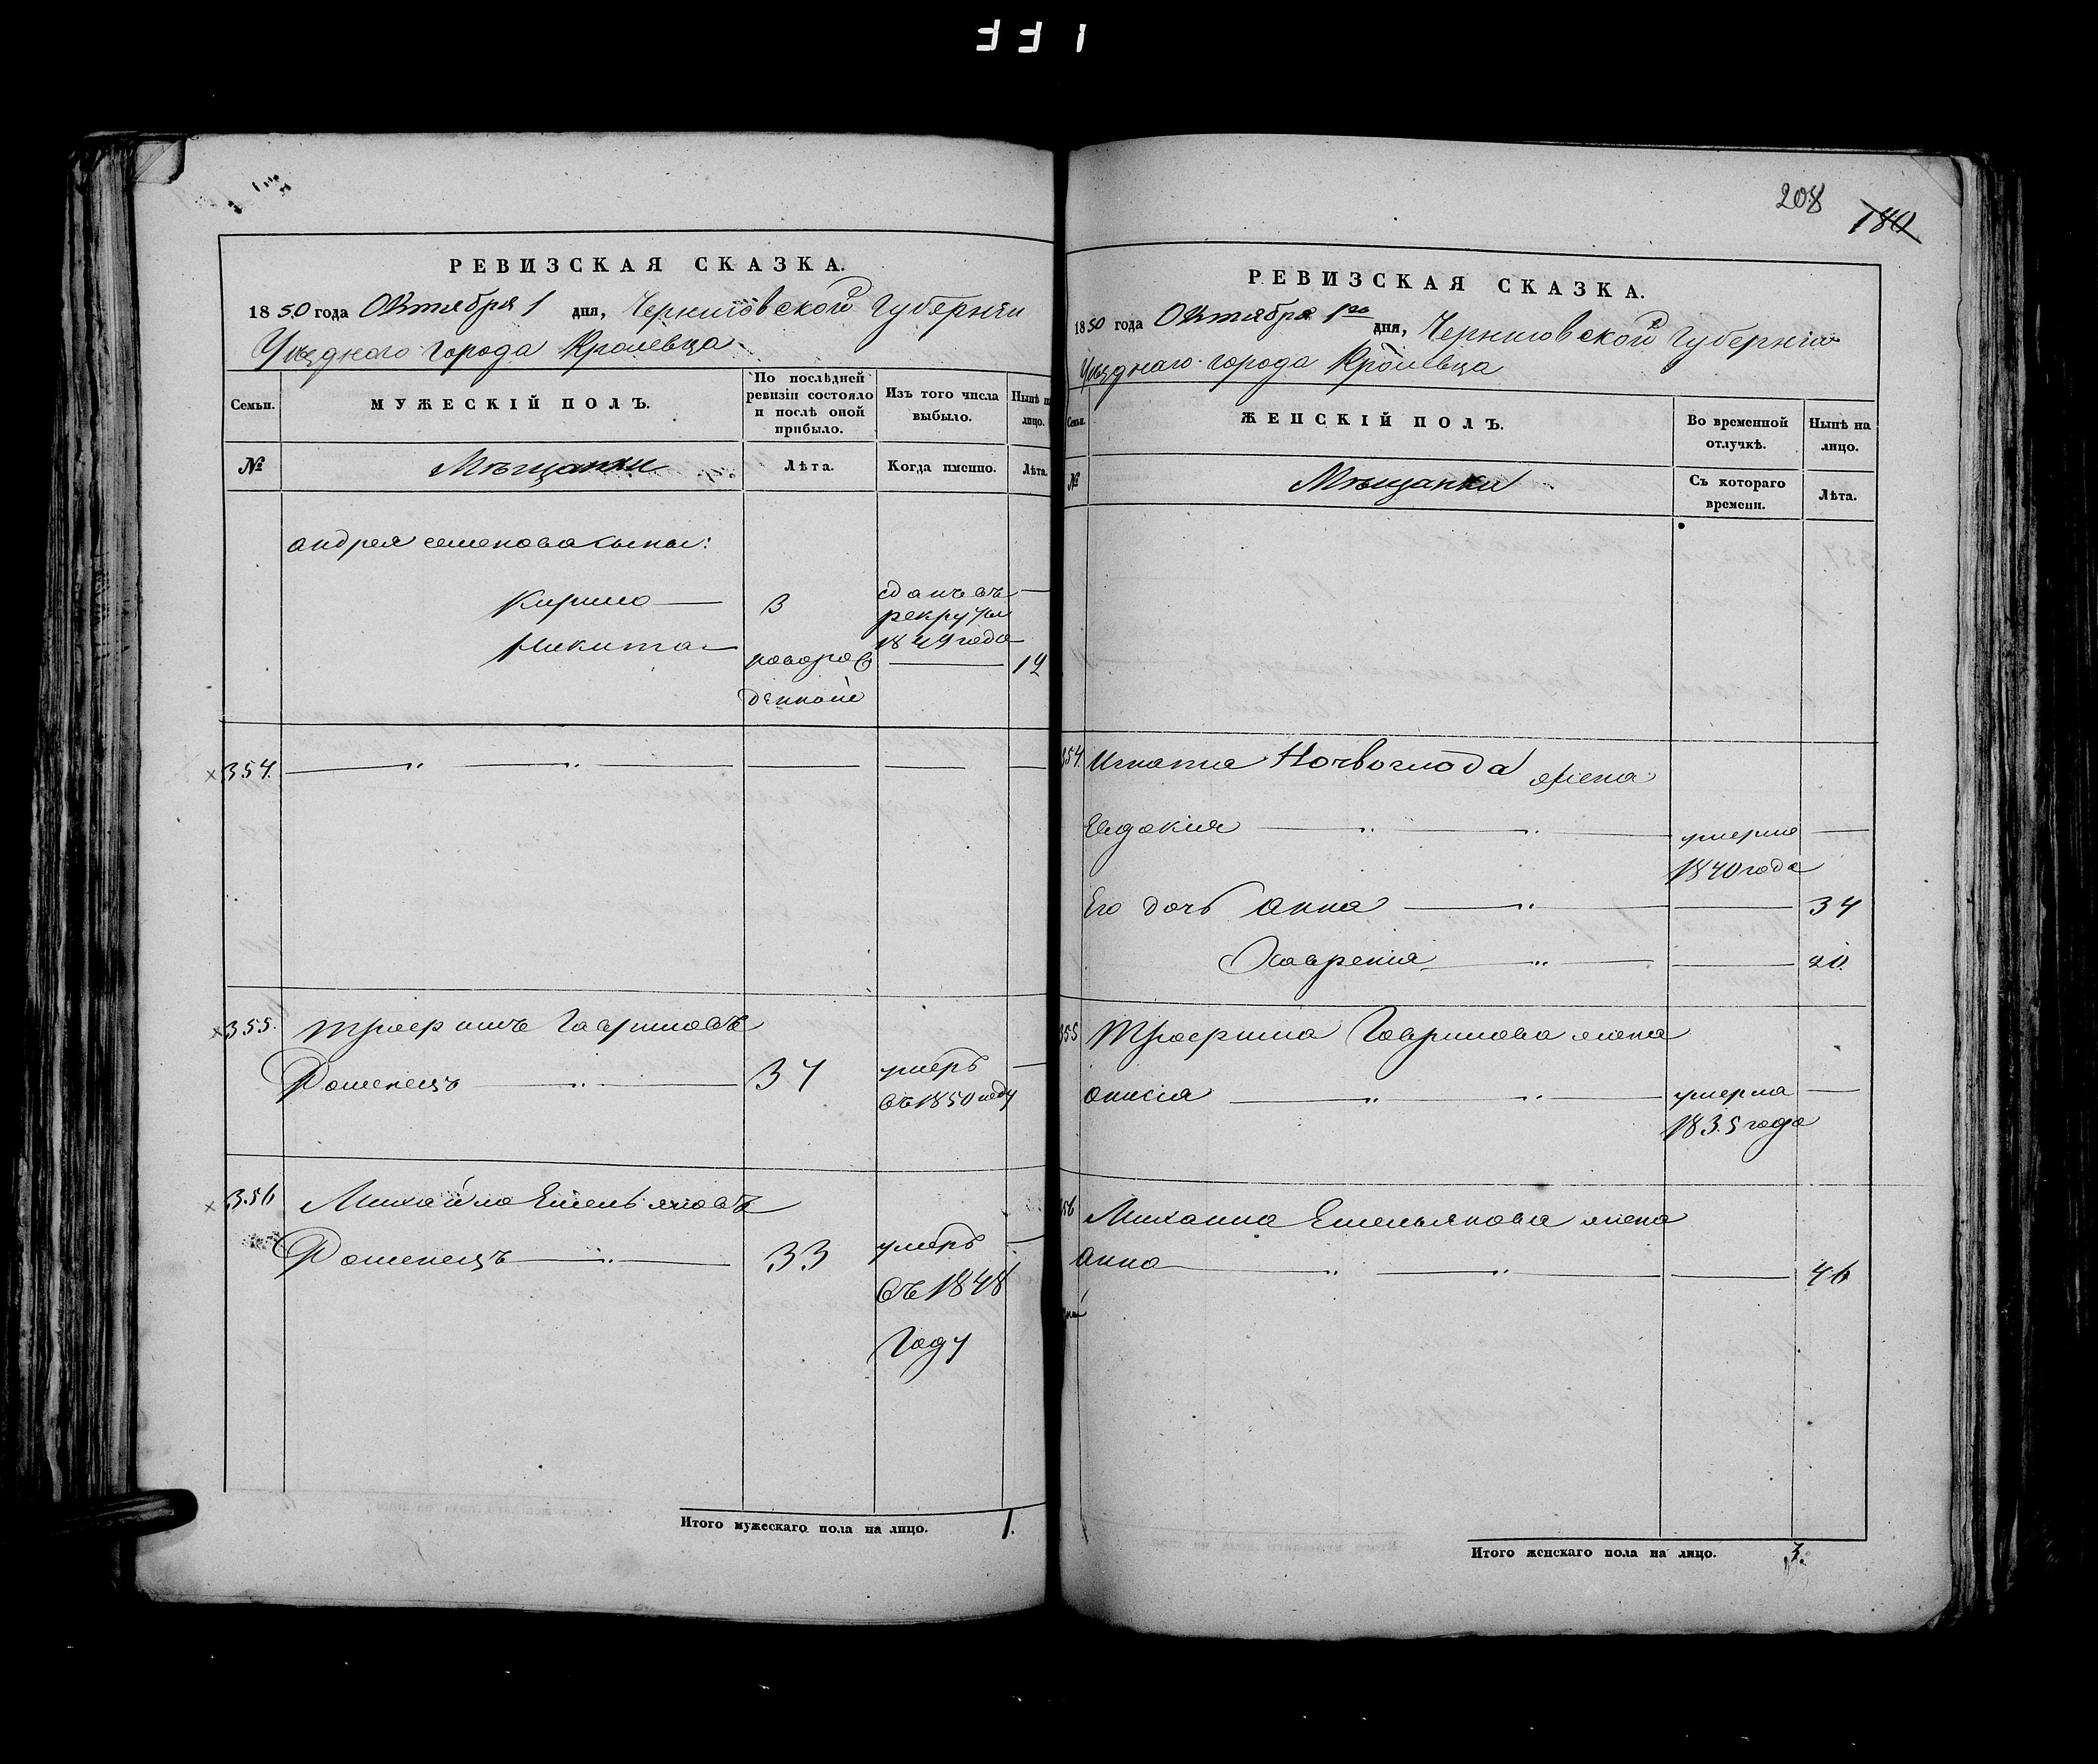 208
180
РЕВИЗСКАЯ СКАЗКА.
1850 года Октября 1 дня, Черниговской Губерніи
Уѣзднаго города Кролевца
Семьи.
МУЖЕСКІЙ ПОЛЪ.
По послѣдней ревизіи состояло и послѣ оной прибыло.
Изъ того числа выбыло.
Нынѣ на лицо.
№
Мѣщанки
Лѣта.
Когда именно.
Лѣта.
андрея семенова сыны:
Кирило — 3 сданъ въ рекруты 1849 года —
Никита — новорожденный — 12
354.
355. Трофимъ Гавриловъ
Роменецъ — 34 умеръ въ 1850 году —
356 Михайло Емельяновъ
Роменецъ — 33 умеръ въ 1848 году —
Итого мужескаго пола на лицо. 1.
РЕВИЗСКАЯ СКАЗКА.
1850 года Октября 1го дня, Черниговской Губерніи
Уѣзднаго города Кролевца
Семьи.
ЖЕНСКІЙ ПОЛЪ.
Во временной отлучкѣ.
Нынѣ на лицо.
№
Мѣщанки
Съ котораго времени.
Лѣта.
354. Игната жена
Евдокия — умерла 1840 года —
Его дочь анна — 34
Хавронія — 20.
355 Гаврилова жена
умерла 1835 года —
356 Михаила Емельянова жена
анна — 46
Итого женскаго пола на лицо. 3.